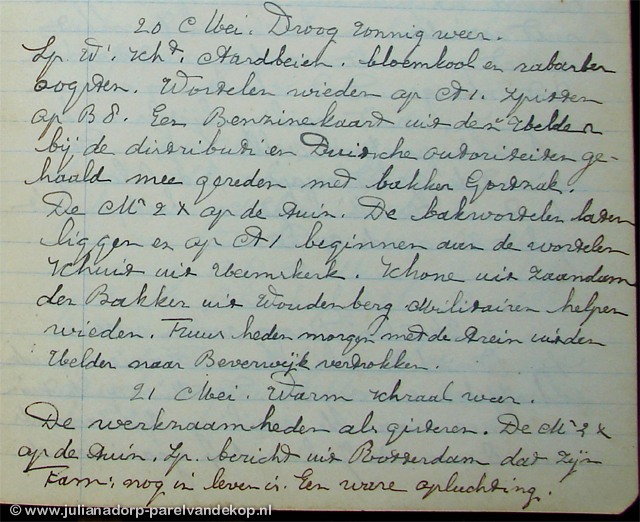 20 Mei. Droog zonnig weer.
Sp. W. Sch. Aardbeien. bloemkool en rabarber
oogsten. Wortelen wieden op A1. Spitten
op B8. Een Benzinekaart uit den Helder
bij de distributie en Duitsche autoriteiten ge-
haald mee gereden met bakker Gortzak.
De Mr 2 x op de tuin. De bakwortelen laten
liggen en op A1 beginnen aan de wortelen
Schuit uit Heemskerk. Schone uit Zaandam
den Bakker uit Woudenberg Militairen helpen
wieden. Truus heden morgen met de trein uit den
Helder naar Beverwijk vertrokken.
21 Mei. Warm schraal weer.
De werkzaamheden als gisteren. De Mr 2 x
op de tuin. Sp. bericht uit Rotterdam dat zijn
Fam: nog in leven is. Een ware opluchting.
© www.julianadorp-parelvandekop.nl